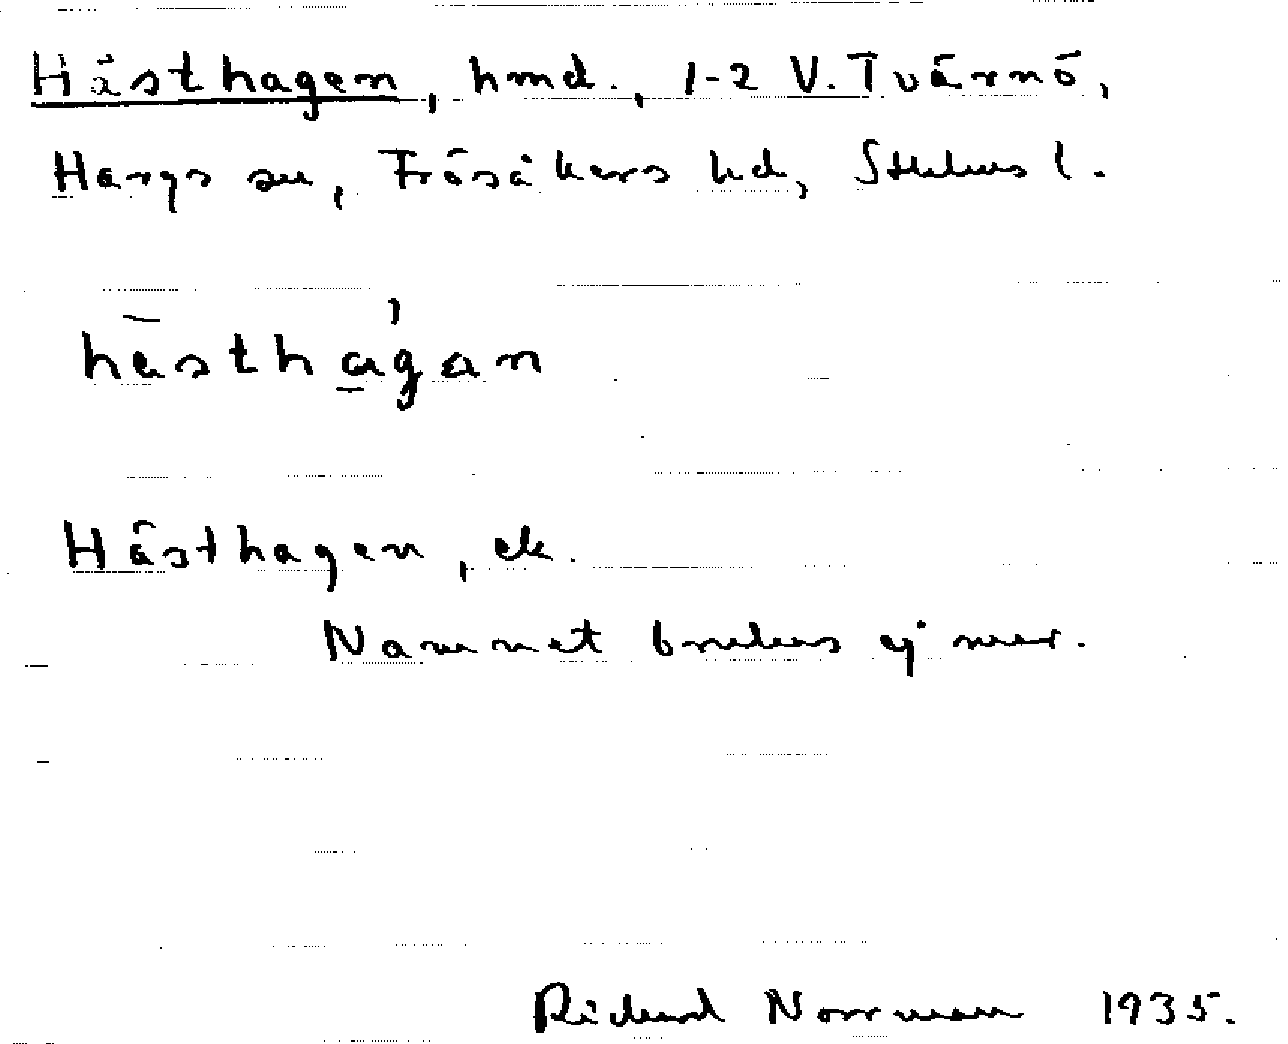 Hästhagen, hmd., 1-2 V. Tvärnö,
Hargs sn, Frösåkers hd, Sthlms l.
hästhàgan
Hästhagen, ek.
Namnet brukas ej mer.
Richard Norrman 1935.